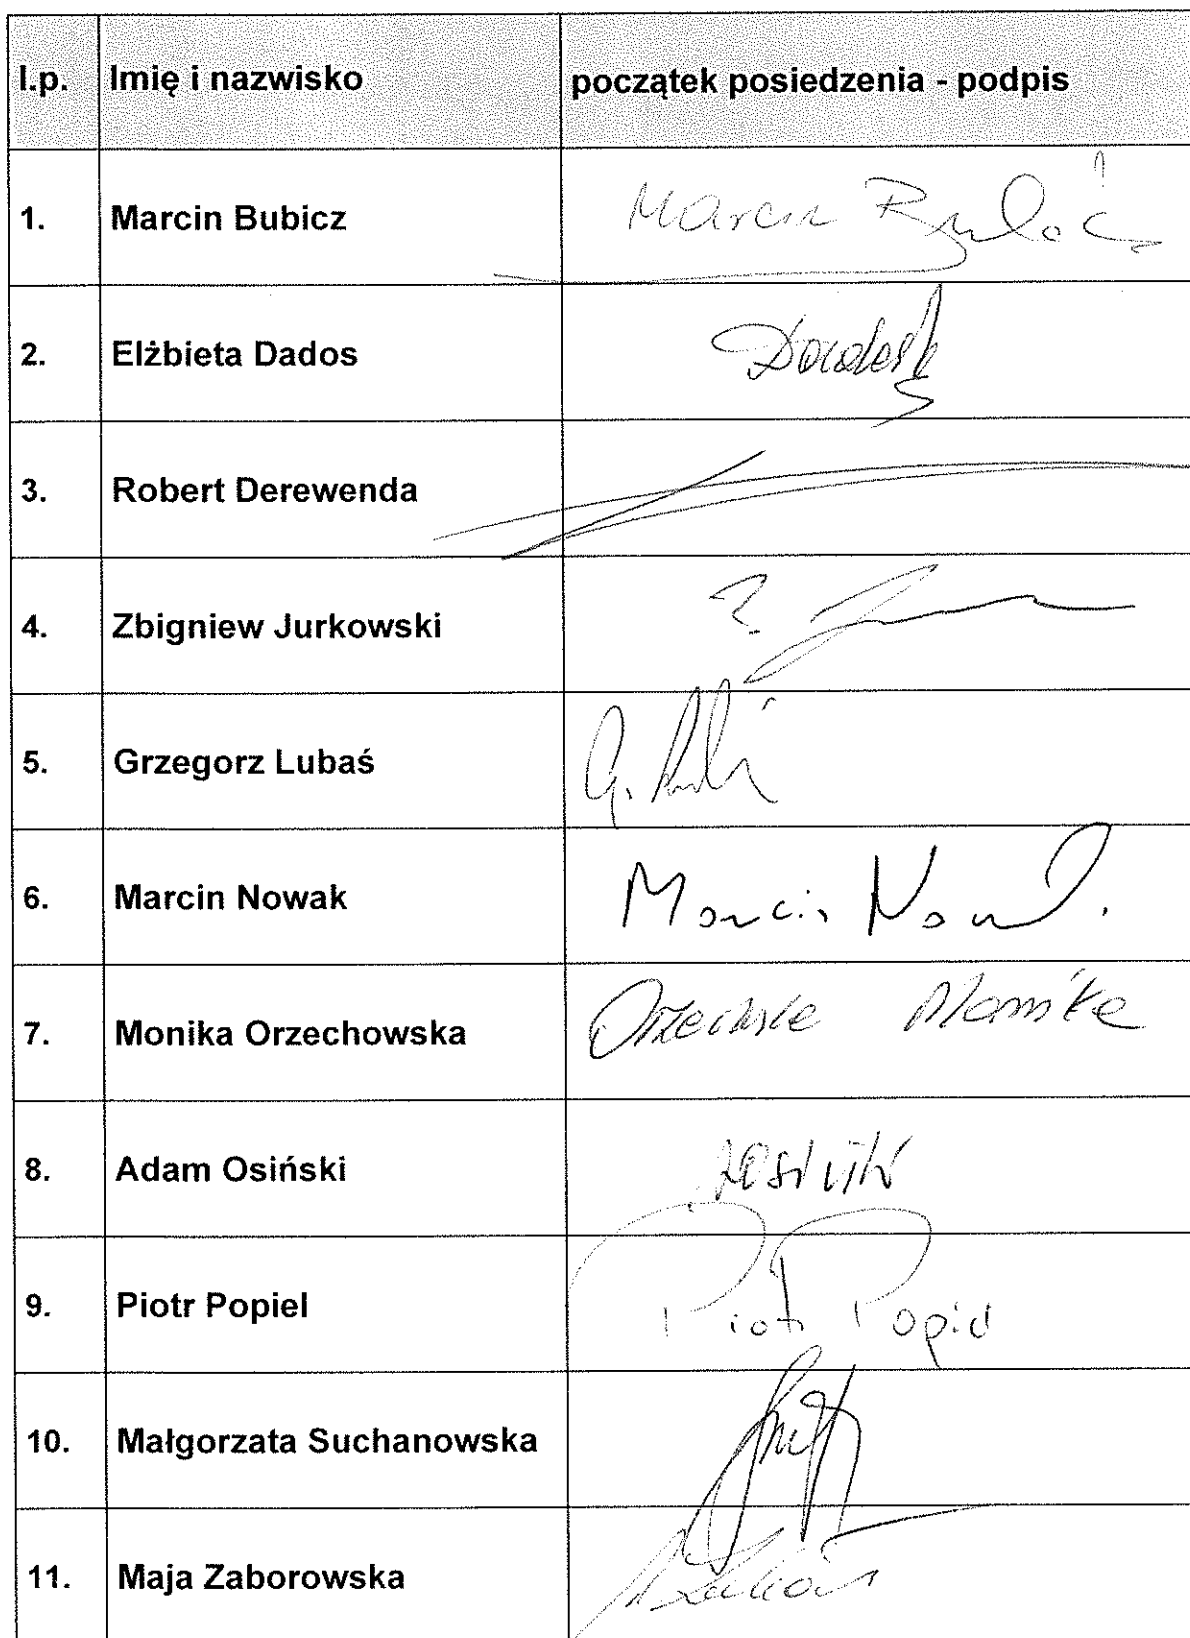 l.p. Imię i nazwisko początek posiedzenia - podpis
1. Marcin Bubicz Marcin
2. Elżbieta Dados
3. Robert Derewenda
4. Zbigniew Jurkowski
5. Grzegorz Lubaś G.
6. Marcin Nowak Marcin Nowak
7. Monika Orzechowska Monika
8. Adam Osiński
9. Piotr Popiel Piotr Popiel
10. Małgorzata Suchanowska
11. Maja Zaborowska